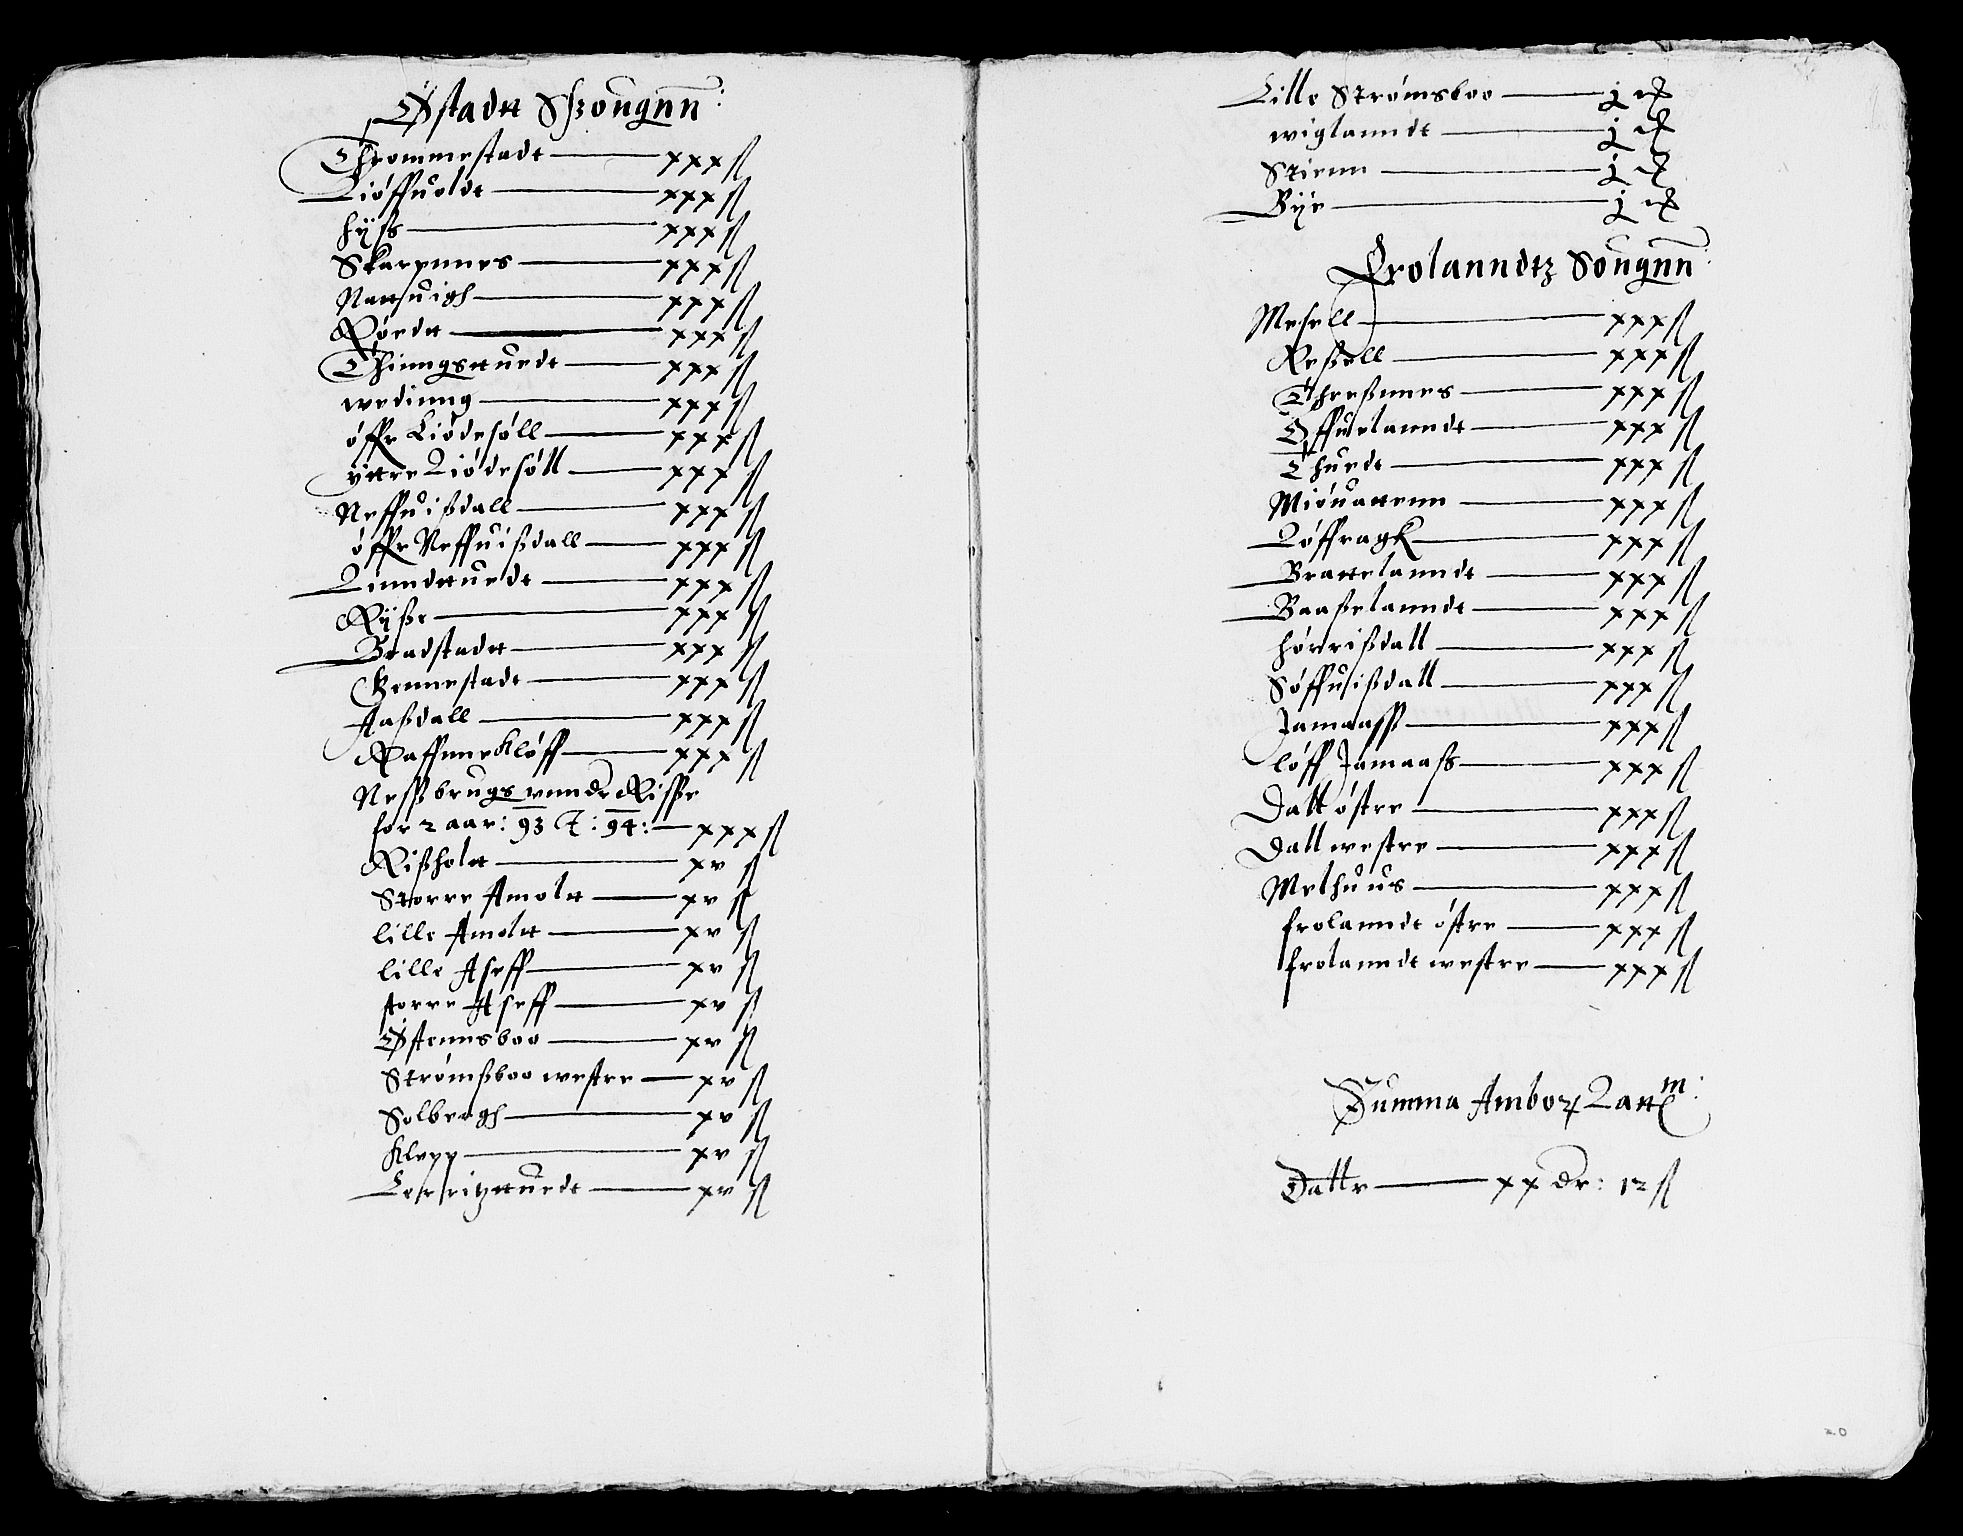 Østadtt Shougnn:
Thrommestadt — xxx ß
Liøffuoldt — xxx ß
Fyß — xxx ß
Skarpnnes — xxx ß
Nattuigh — xxx ß
Rørdtt — xxx ß
Thinngsttuedt — xxx ß
wedinng — xxx ß
øffre Liødesøll — xxx ß
yttre Liødesøll — xxx ß
Neffuißdall — xxx ß
øffre Neffuißdall — xxx ß
Linndttuedt — xxx ß
Ryße — xxx ß
Bradstadtt — xxx ß
Gennestadt — xxx ß
Aaßdall — xxx ß
Raffnnekløff — xxx ß
Neß brugs vnndr Riße
for 2 aar: 93 : 94: — xxx ß
Rißholtt — xv ß
Storre Amoltt — xv ß
lille Amoltt — xv ß
lille Aseff — xv ß
storre Aseff — xv ß
Østennsboo — xv ß
Strømßboo westre — xv ß
Solbergh — xv ß
Klepp — xv ß
Lerritzttuedt — xv ß
Lille Strømsboo — j
wiglanndt — j
Stienn — j
Bye — j
Frolanndtz Sougnn:
Mesell — xxx ß
Reßell — xxx ß
Threßnnes — xxx ß
Offuelanndt — xxx ß
Thuedt — xxx ß
Miøuattenn — xxx ß
Løffragk — xxx ß
Brattelanndt — xxx ß
Baaßelanndt — xxx ß
Hørrißdall — xxx ß
Søffuißdall — xxx ß
Jamaaß — xxx ß
løff Jamaaß — xxx ß
Dall østre — xxx ß
Dall westre — xxx ß
Melhuus — xxx ß
frolanndt østre — xxx ß
frolanndt westre — xxx ß
Summa Ambor
Dallr — xx dr: 12 ß
20